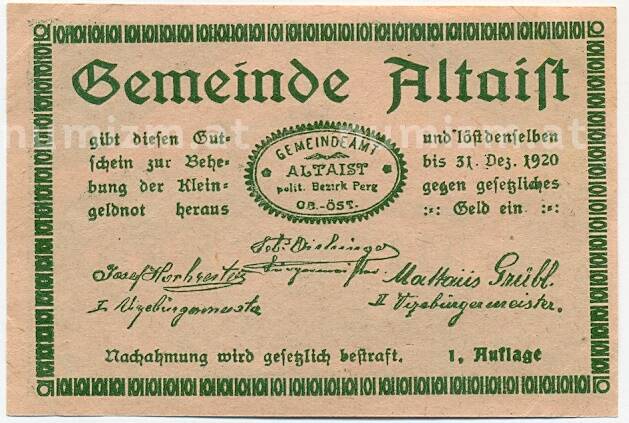 Gemeinde Altaist
gibt diesen Gut-
schein zur Behe-
bung der Klein-
geldnot heraus
GEMEINDEAMT
ALTAIST
polit. Bezirk Perg
OB.-ÖST.
und löst denselben
bis 31. Dez. 1920
gegen gesetzliches
:-: Geld ein :-:
Bürgermeister
Josef
I Vizebürgermeister
Mattäus Grübl.
II Vizebürgermeister.
Nachahmung wird gesetzlich bestraft. 1. Auflage
numizm.at numizm.at